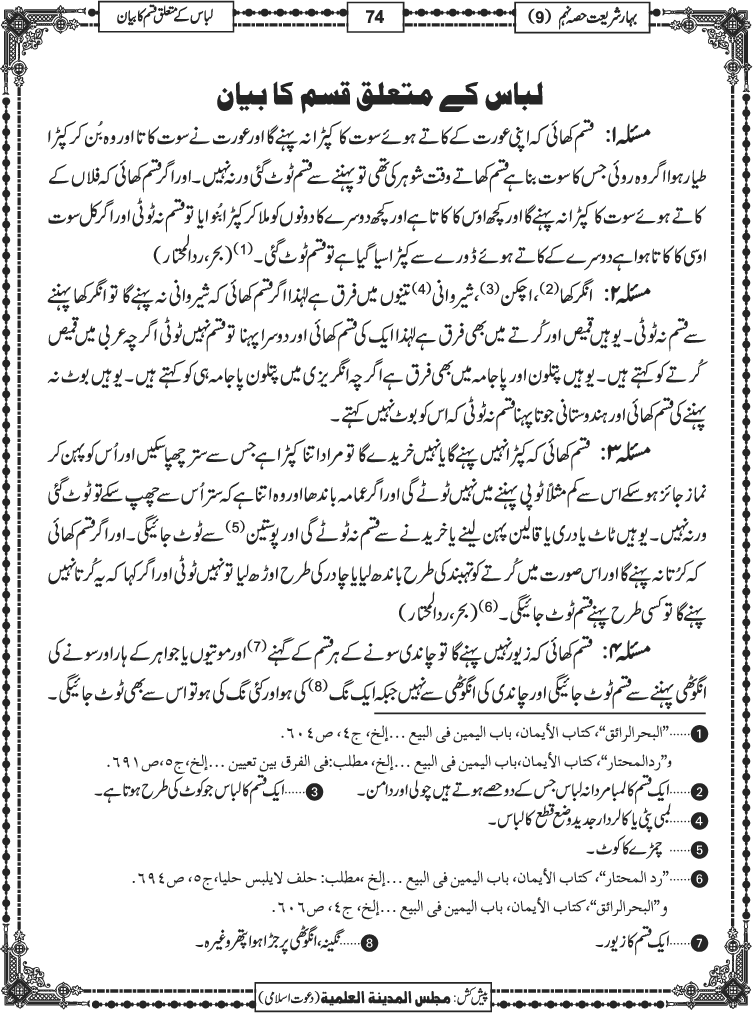 بہارِ شریعت حصہ نہم (9)
74
لباس کے متعلق قسم کا بیان
لباس کے متعلق قسم کا بیان
مسئلہ ۱: قسم کھائی کہ اپنی عورت کے کاتے ہوئے سوت کا کپڑا نہ پہنے گا اور عورت نے سوت کاتا اور وہ بُن کر کپڑا
طیار ہوا اگر وہ روئی جس کا سوت بنا ہے قسم کھاتے وقت شوہر کی تھی تو پہننے سے قسم ٹوٹ گئی ورنہ نہیں۔ اور اگر قسم کھائی کہ فلاں کے
کاتے ہوئے سوت کا کپڑا نہ پہنے گا اور کچھ اوس کا کاتا ہے اور کچھ دوسرے کا دونوں کو ملا کر کپڑا بُنوایا تو قسم نہ ٹوٹی اور اگر کل سوت
اوسی کا کاتا ہوا ہے دوسرے کے کاتے ہوئے ڈورے سے کپڑا سیا گیا ہے تو قسم ٹوٹ گئی۔ (1) (بحر، ردالمحتار)
مسئلہ ۲: انگرکھا(2)، اچکن(3)، شیروانی(4) تینوں میں فرق ہے لہٰذا اگر قسم کھائی کہ شیروانی نہ پہنے گا تو انگرکھا پہننے
سے قسم نہ ٹوٹی۔ یوہیں قمیص اور کُرتے میں بھی فرق ہے لہٰذا ایک کی قسم کھائی اور دوسرا پہنا تو قسم نہیں ٹوٹی اگرچہ عربی میں قمیص
کُرتے کو کہتے ہیں۔ یوہیں پتلون اور پاجامہ میں بھی فرق ہے اگرچہ انگریزی میں پتلون پاجامہ ہی کو کہتے ہیں۔ یوہیں بوٹ نہ
پہننے کی قسم کھائی اور ہندوستانی جوتا پہنا قسم نہ ٹوٹی کہ اس کو بوٹ نہیں کہتے۔
مسئلہ ۳: قسم کھائی کہ کپڑا نہیں پہنے گا یا نہیں خریدے گا تو مراد اتنا کپڑا ہے جس سے ستر چھپا سکیں اور اُس کو پہن کر
نماز جائز ہو سکے اس سے کم مثلاً ٹوپی پہننے میں نہیں ٹوٹے گی اور اگر عمامہ باندھا اور وہ اتنا ہے کہ ستر اُس سے چھپ سکے تو ٹوٹ گئی
ورنہ نہیں۔ یوہیں ٹاٹ یا دری یا قالین پہن لینے یا خریدنے سے قسم نہ ٹوٹے گی اور پوستین(5) سے ٹوٹ جائیگی۔ اور اگر قسم کھائی
کہ کُرتا نہ پہنے گا اور اس صورت میں کُرتے کو تہبند کی طرح باندھ لیا یا چادر کی طرح اوڑھ لیا تو نہیں ٹوٹی اور اگر کہا کہ یہ کُرتا نہیں
پہنے گا تو کسی طرح پہنے قسم ٹوٹ جائیگی۔ (6) (بحر، ردالمحتار)
مسئلہ ۴: قسم کھائی کہ زیور نہیں پہنے گا تو چاندی سونے کے ہر قسم کے گہنے(7) اور موتیوں یا جواہر کے ہار اور سونے کی
انگوٹھی پہننے سے قسم ٹوٹ جائیگی اور چاندی کی انگوٹھی سے نہیں جبکہ ایک نگ(8) کی ہو اور کئی نگ کی ہو تو اس سے بھی ٹوٹ جائیگی۔
1 ......"البحرالرائق"، کتاب الأیمان، باب الیمین فی البیع ...إلخ، ج٤، ص٦٠٤.
و"ردالمحتار"، کتاب الأیمان، باب الیمین فی البیع ...إلخ، مطلب: فی الفرق بین تعیین ...إلخ، ج٥، ص٦٩١.
2 ......ایک قسم کا لمبا مردانہ لباس جس کے دو حصے ہوتے ہیں چولی اور دامن۔ 3 ......ایک قسم کا لباس جو کوٹ کی طرح ہوتا ہے۔
4 ......لمبی پٹی یا کالر دار جدید وضع قطع کا لباس۔
5 ...... چمڑے کا کوٹ۔
6 ......"رد المحتار"، کتاب الأیمان، باب الیمین فی البیع ...إلخ، مطلب: حلف لایلبس حلیا، ج٥، ص٦٩٤.
و"البحرالرائق"، کتاب الأیمان، باب الیمین فی البیع ...إلخ، ج٤، ص٦٠٦.
7 ......ایک قسم کا زیور۔ 8 ......نگینہ، انگوٹھی پر جڑا ہوا پتھر وغیرہ۔
پیش کش: مجلس المدینة العلمیة (دعوت اسلامی)